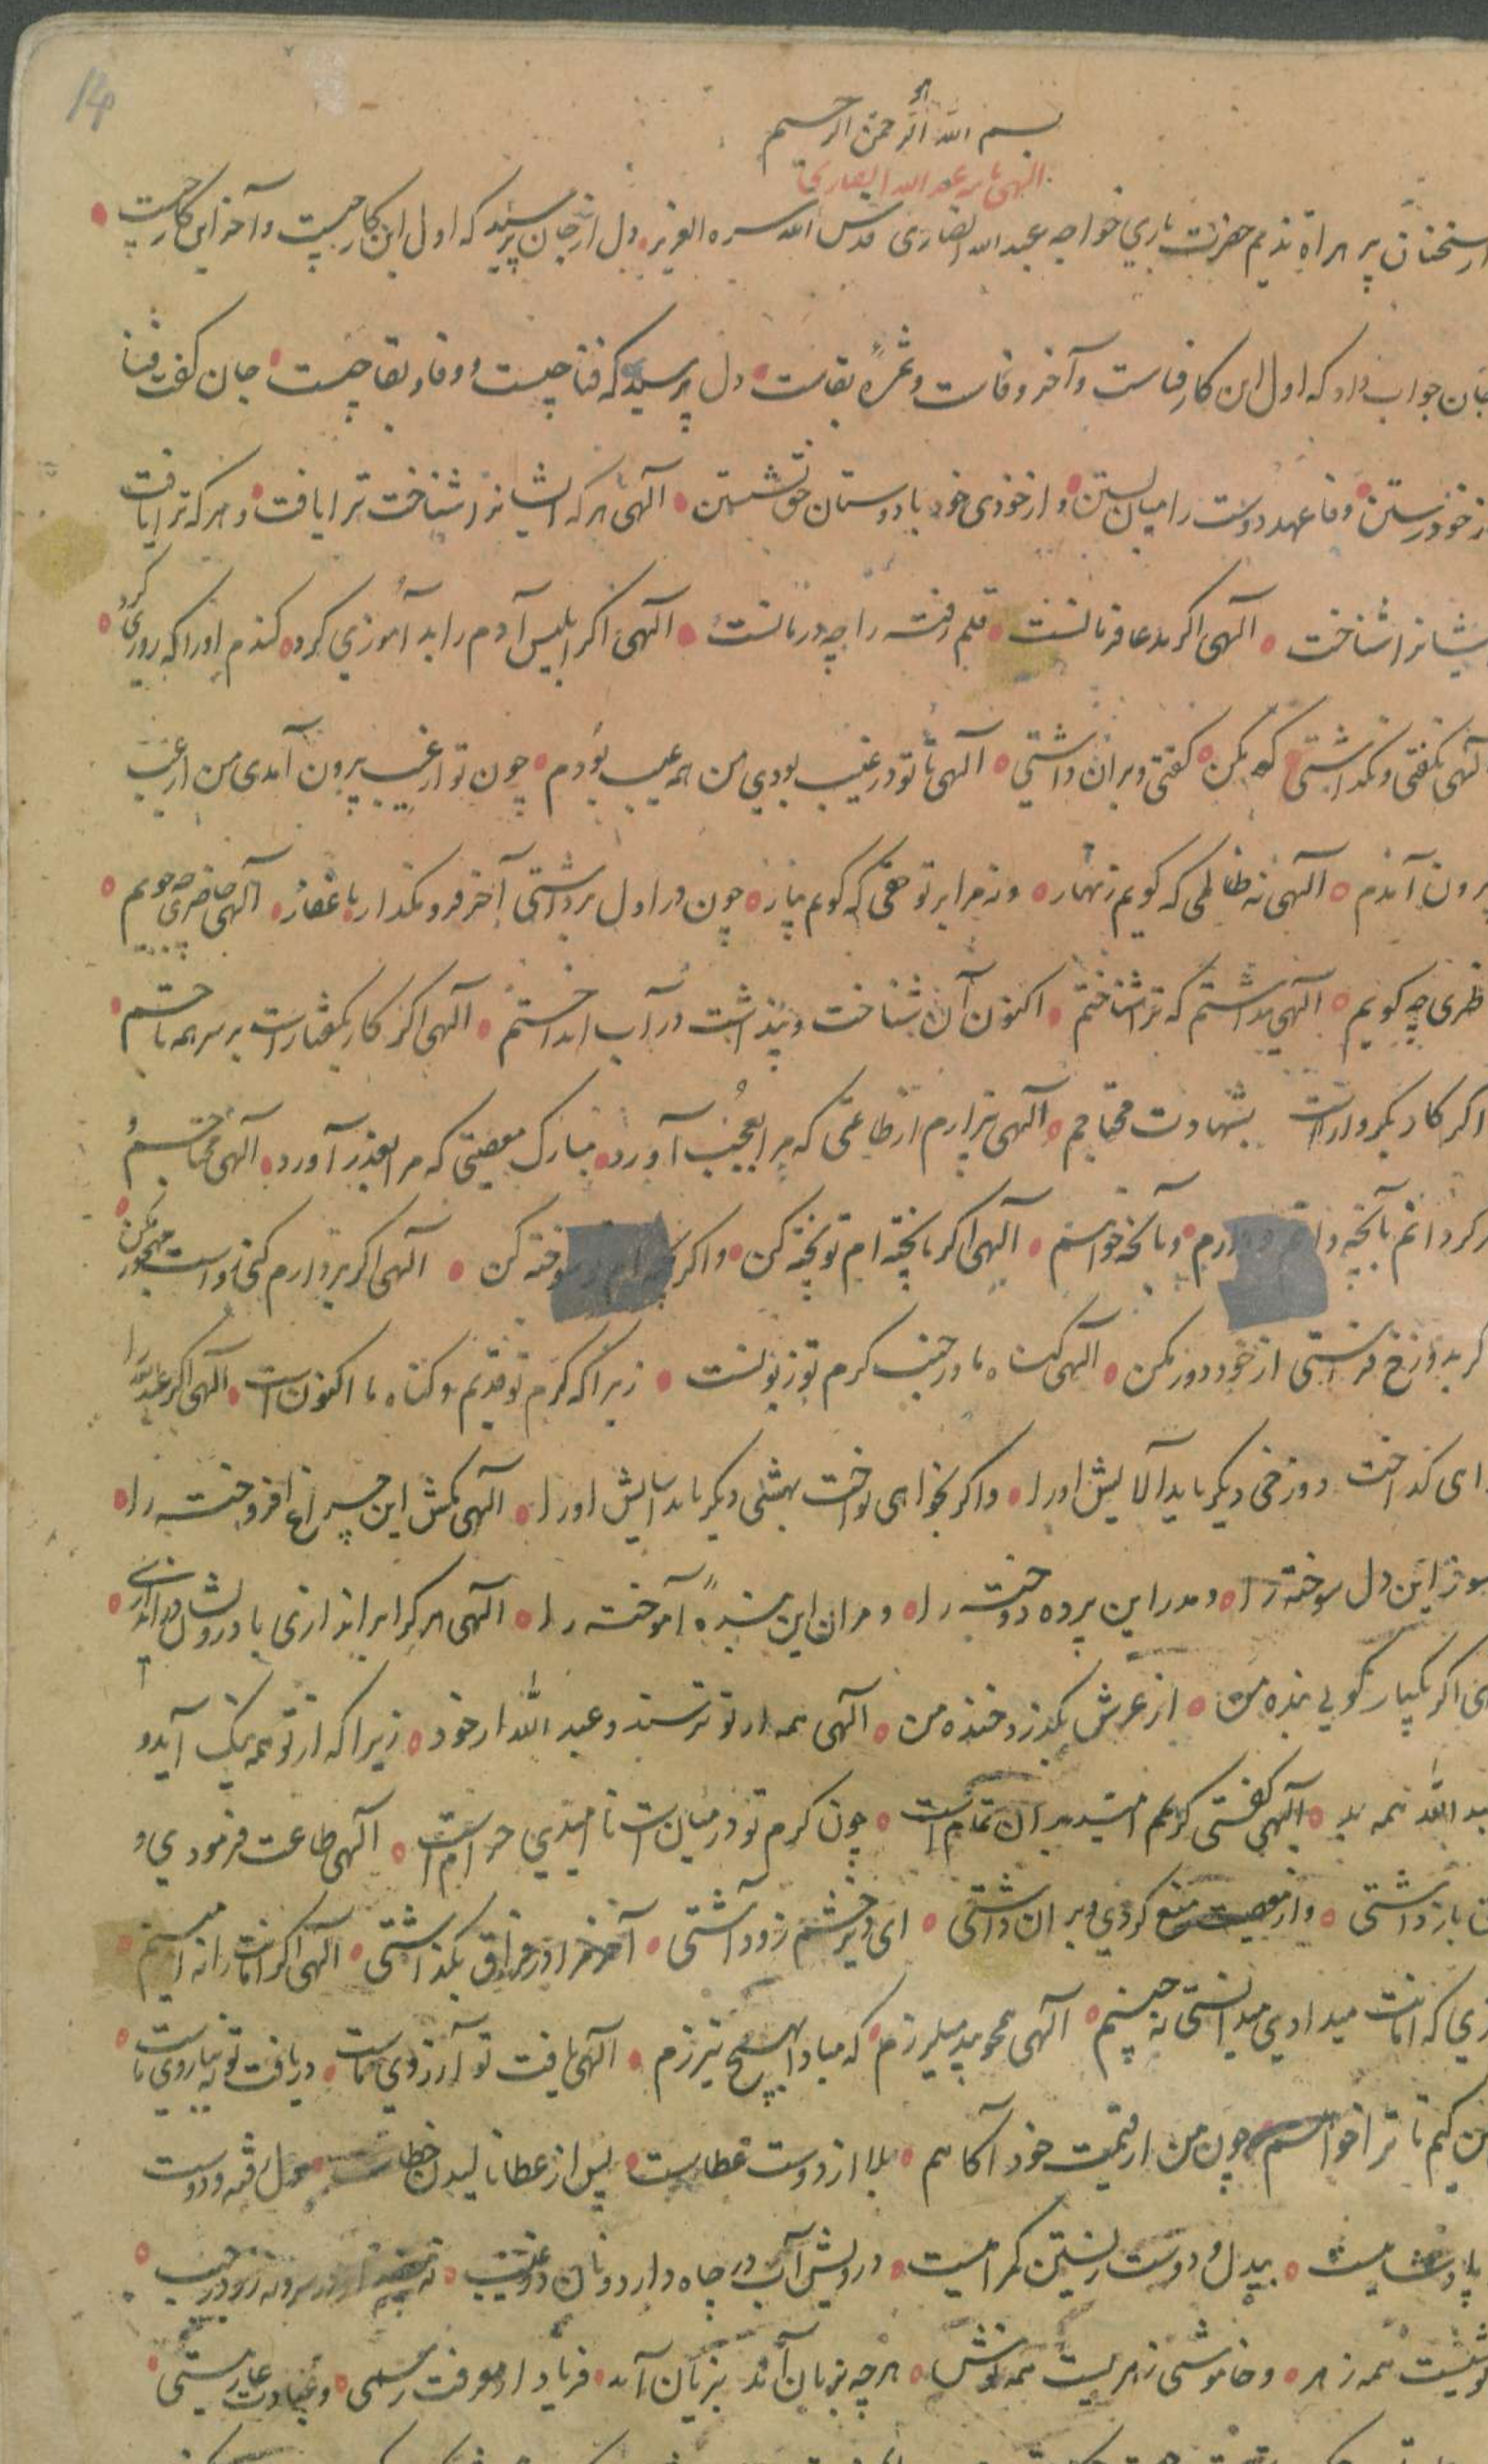 14
هو
بسم الله الرحمن الرحیم
الهی نامه عبد الله انصاری
از سخنان پیر هراة ندیم حضرت باری خواجه عبد الله انصاری قدس الله سره العزیز دل از جان پرسید که اول این کار چیست و آخر این کار چیست
جان جواب داد که اول این کار فناست و آخر وفاست و ثمرهٔ بقاست دل پرسید که فنا چیست و وفا و بقا چیست جان گفت فنا
از خود رستن وفا عهد دوست را میان بستن و از خودی خود با دوستان حق نشستن الهی هر که ایشانرا شناخت ترا یافت و هر که ترا یافت
ایشانرا شناخت الهی اگر بدعا فرمانست قلم رفته را چه درمانست الهی اگر ابلیس آدم را بد آموزی کرد گندم او را که روزی کرد
الهی بگفتی و نگذاشتی که مکن گفتی و بران داشتی الهی تا تو در غیب بودی من همه عیب بودم چون تو از غیب برون آمدی من از عیب
برون آمدم الهی نه ظالمی که گویم زنهار و نه مرا بر تو حقی که گویم بیار چون در اول برداشتی آخر فرو مگذار یا غفار الهی حاضری چه جویم
ناظری چه گویم الهی پنداشتم که ترا شناختم اکنون آن شناخت و پنداشت در آب انداختم الهی اگر کار بگفتارست بر سر همه تاجم
اگر کار بکردارست بشهادت محتاجم الهی بیزارم از طاعتی که مرا بعجب آورد مبارک معصیتی که مرا بعذر آورد الهی
الهی اگر ناپخته ام تو پخته کن واگر سوخته کن الهی اگر بردارم کنی رواست مهجور مکن
گر بدوزخ فرستی از خود دور مکن الهی گناه ما در جنب کرم تو زبونست زیرا که کرم تو قدیم و گناه ما اکنون است الهی اگر عبد الله را
ای گداخت دوزخی دیگر باید آلایش او را واگر بخواهی نواخت بهشتی دیگر باید آسایش او را الهی مکش این چراغ افروخته را
سوز این دل سوخته را و مدر این پرده دوخته را و مران این بندهٔ آموخته را الهی هر کرا براندازی با درویشان در اندازی
الهی اگر یکبار گویی بنده من از عرش بگذرد خنده من الهی همه از تو ترسند و عبد الله از خود زیرا که از تو همه نیک آید و
عبد الله همه بد الهی گفتی کریمم امید بدان تمام است چون کرم تو در میان است نا امیدی حرام است الهی طاعت فرمودی و
باز داشتی و از معصیت منع کردی و بران داشتی ای دیر خشم زود آشتی آخر مرا در فراق بگذاشتی الهی اگر امانت را نه امینم
روزی که امانت میدادی میدانستی که چنینم الهی چو بید میلرزم که مبادا بهیچ نیرزم الهی یافت تو آرزوی ماست دریافت تو نه ببازوی ماست
من کیم تا ترا خواهم چون من از قیمت خود آگاهم بلا از دوست عطاست پس از عطا نالیدن خطاست دل رفته و دوست
پادشاهیست بیدل و دوست زیستن گمراهیست درویش آب در چاه دارد و نان در غیب نه
نوشیست همه زهر و خاموشی زهریست همه نوش هر چه بزبان آمد بزیان آمد فریاد از معرفت رسمی و عبادت عادتی